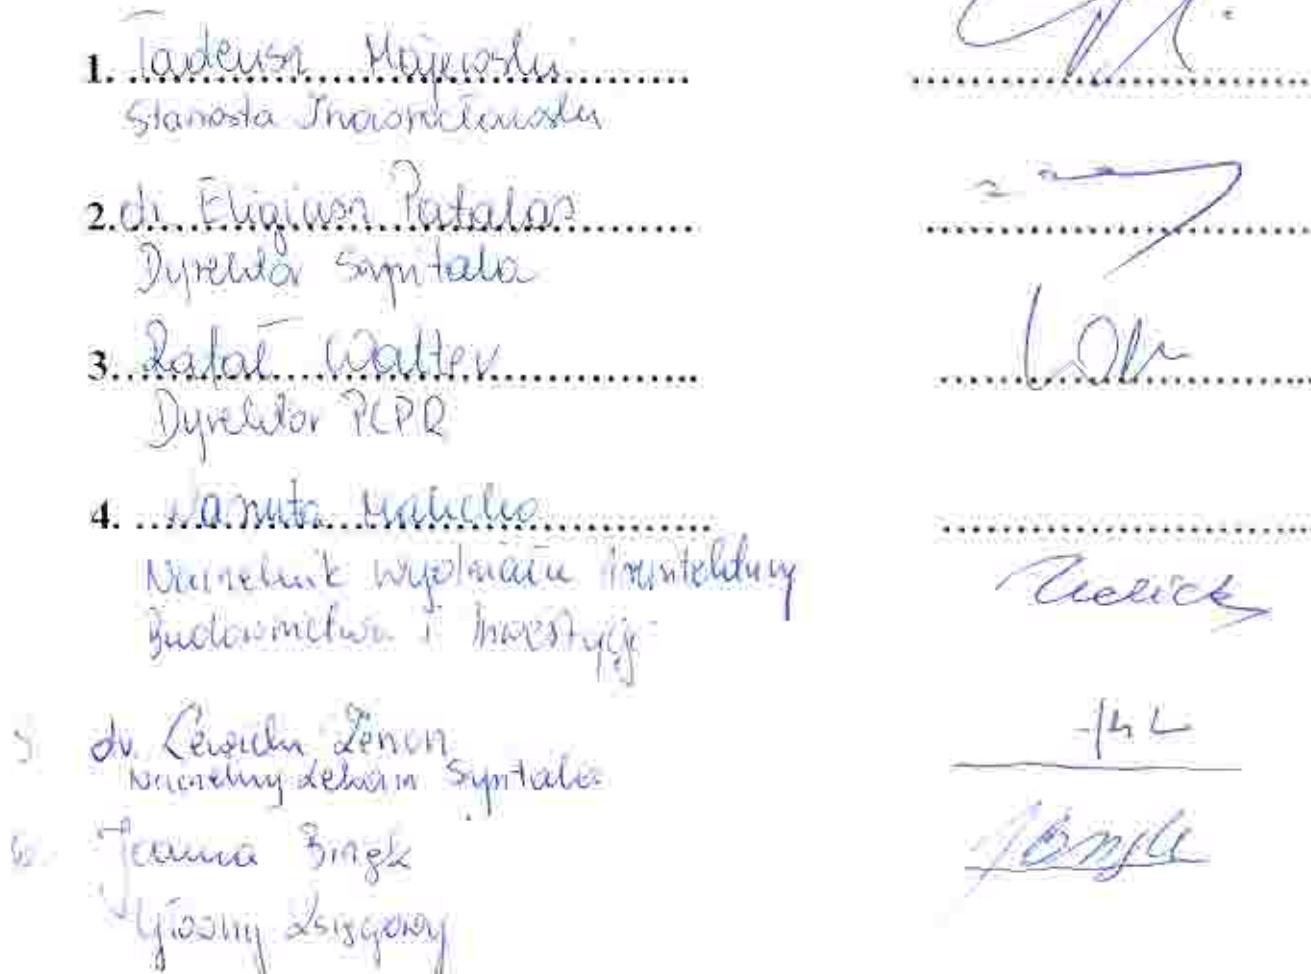 1. Tadeusz Majewski
Starosta Inowrocławski
2. dr Eligiusz Patalas
Dyrektor Szpitala
3. Rafał Walter
Dyrektor PCPR
4. Danuta
Naczelnik Wydziału Architektury
Budownictwa i Inwestycji
5. dr. Zenon
Naczelny Lekarz Szpitala
6. Joanna
Główny Księgowy